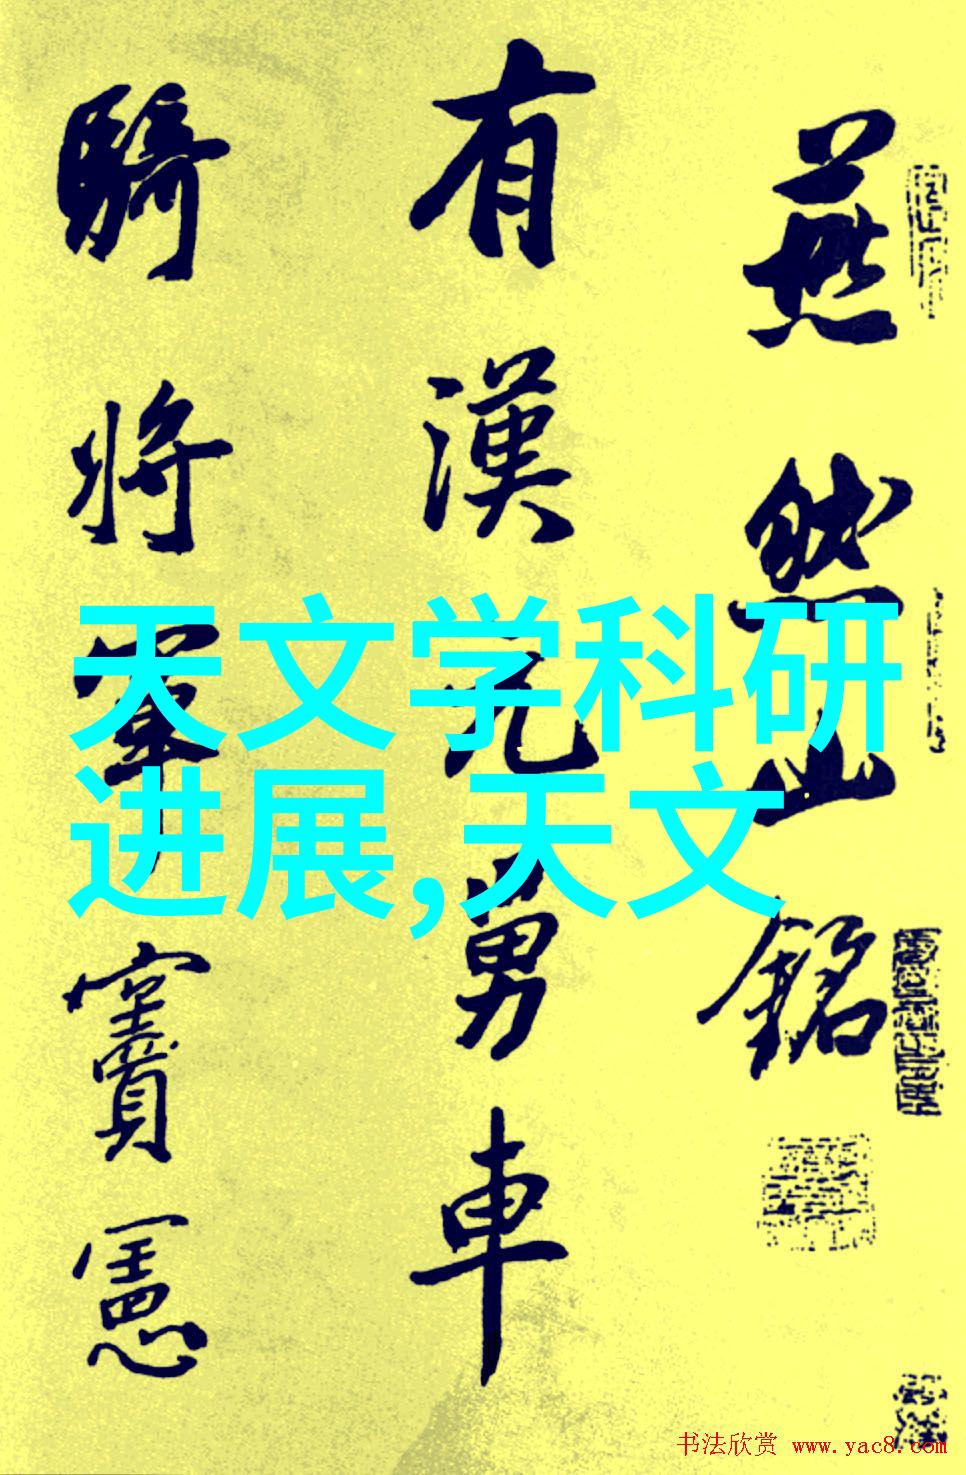 燕然山銘
有漢元舅車
騎將軍竇憲
天文学科研
进展,天文
书法欣赏 www.yac8.com